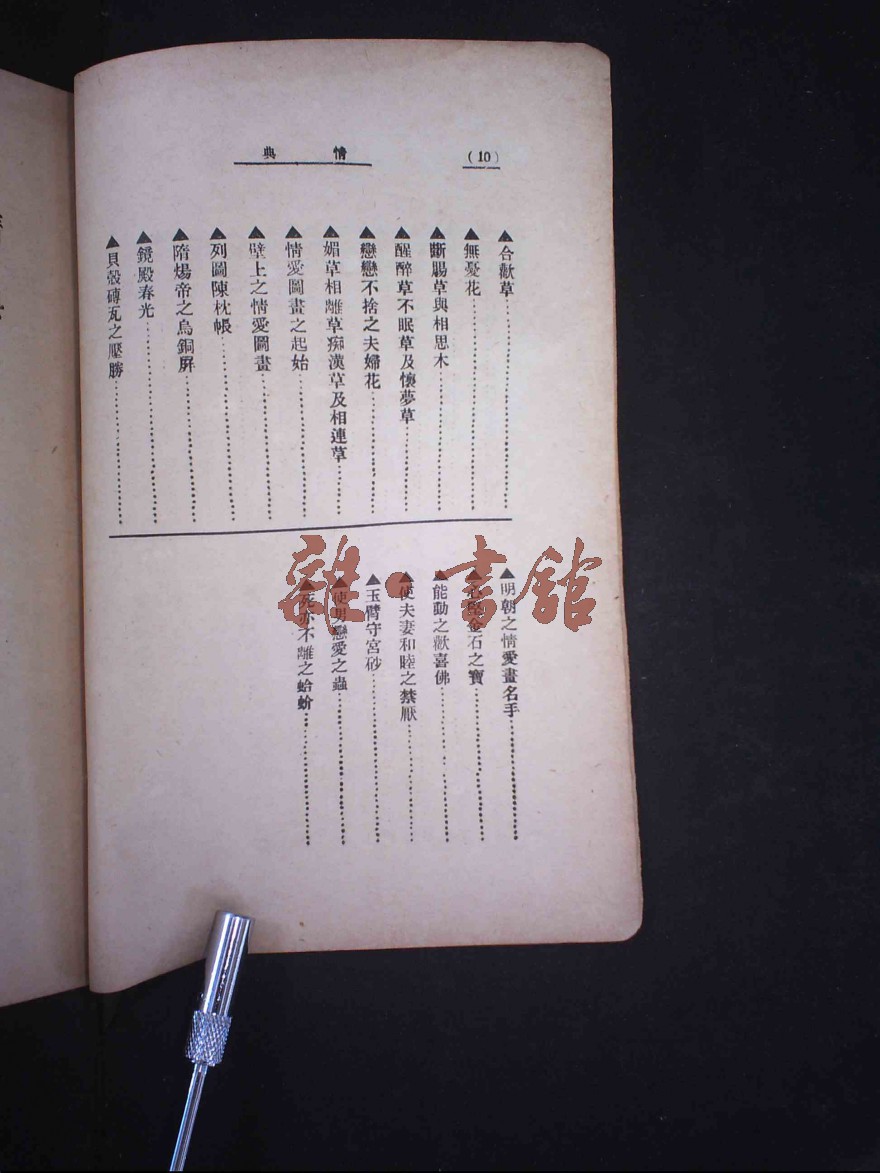 (10)
情典
▲合歡草
▲無憂花
▲斷腸草與相思木
▲醒醉草不眠草及懷夢草
▲戀戀不捨之夫婦花
▲媚草相離草痴漢草及相連草
▲情愛圖畫之起始
▲壁上之情愛圖畫
▲列圖陳枕帳
▲隋煬帝之烏銅屏
▲鏡殿春光
▲貝殼磚瓦之壓勝
▲明朝之情愛畫名手
▲心堅金石之寶
▲能動之歡喜佛
▲使夫妻和睦之禁厭
▲玉臂守宮砂
▲使男戀愛之蟲
▲死亦不離之蛤蚧
雜·書館